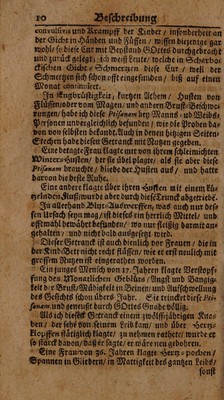 10 Beschreibung
convulsivis und Krampff der Kinder / insonderheit an
der Gicht in Händen und Füssen / wissen diejenige gar
wohl / so diese Cur mit Beystand GOttes durchgebracht
und zurück gelegt. ich weiß Leute / welche in Scharbo-
ckischen Gicht-Schmertzen diese Cur / weil der
Schmertzen sich schon offt eingefunden / biß auf einen
Monat continuiret.
In Engbrüstigkeit / kurtzen Athem / Husten von
Flüssen / oder vom Magen / und andern Brust-Beschwe-
rungen / habe ich diese Ptisanam bey Manns- und Weibs-
Personen unvergleichlich befunden / und die Proben da-
von von den selbsten bekandt. Auch in denen hitzigen Seiten-
Stechen habe diesen Getranck mit Nutzen gegeben.
Eine betagte Frau klagte mir von ihren schleimichten
Winter-Husten / der sie übel plagte / als sie aber diese
Ptisanam brauchte / bliebe der Husten aus / und hatte
darvon die beste Ruhe.
Eine andere klagte über ihren Husten mit einem kü-
tzelnden Fluß / wurde aber durch diese Trunck abgetrieben.
In allerhand Blut-Auswerffen / was auch nun des-
sen Ursach seyn mag / ist dieses ein herrlich Mittel / und
offtmahl bewährt befunden / wo nur fleißig darmit an-
gehalten / und nicht bald ausgesetzt wird.
Dieser Getranck ist auch dienlich vor Frauen / die in
der Kind-Bett nicht recht flüssen / wie er erst neulich mit
grossem Nutzen ist eingerathen worden.
Ein junges Mensch von 17. Jahren klagte Verstopf-
fung des Monatlichen Geblüts / Angst und Bangig-
keit der Brust / Müdigkeit in Beinen / und Aufschwellung
des Gesichts schon übers Jahr. Sie trincket diese Pti-
sanam, und geneußt durch GOttes Gnade völlig.
Als ich dieses Getranck einem zwölffjährigen Kna-
ben / der sehr von seinem Leib kam / und über Hertz-
klopffen stättiglich klagte / zu nehmen rathete / wurde er
so starck davon / daß er sagte / er wäre neu gebohren.
Eine Frau von 36. Jahren klagte Hertz-pochen /
Spannen in Gliedern / in Mattigkeit des gantzen Leibs /
sonst